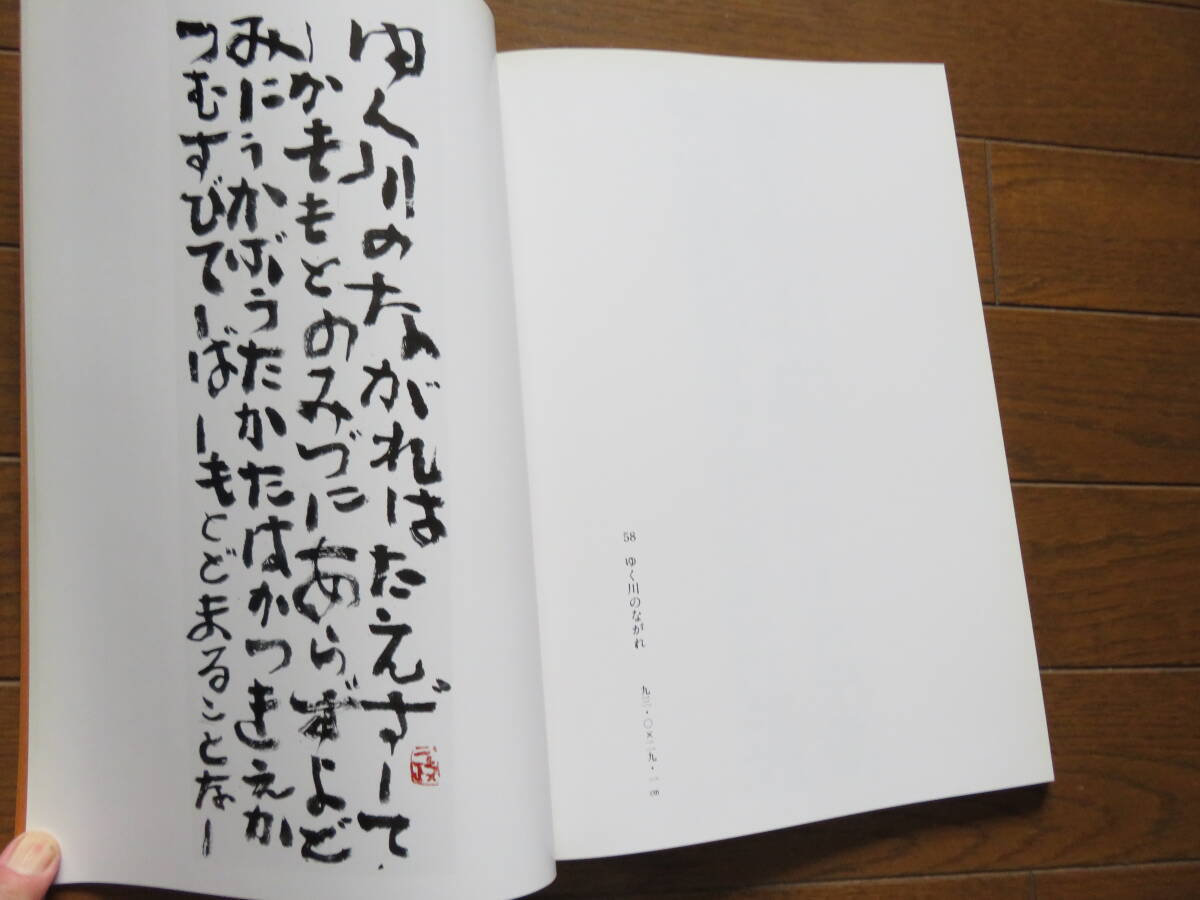 58 ゆく川のながれ 九三・〇×二九・一cm
ゆく川のながれはたえずして
しかももとのみづにあらずよど
みにうかぶうたかたはかつきえか
つむすびてしばしもとどまることなし